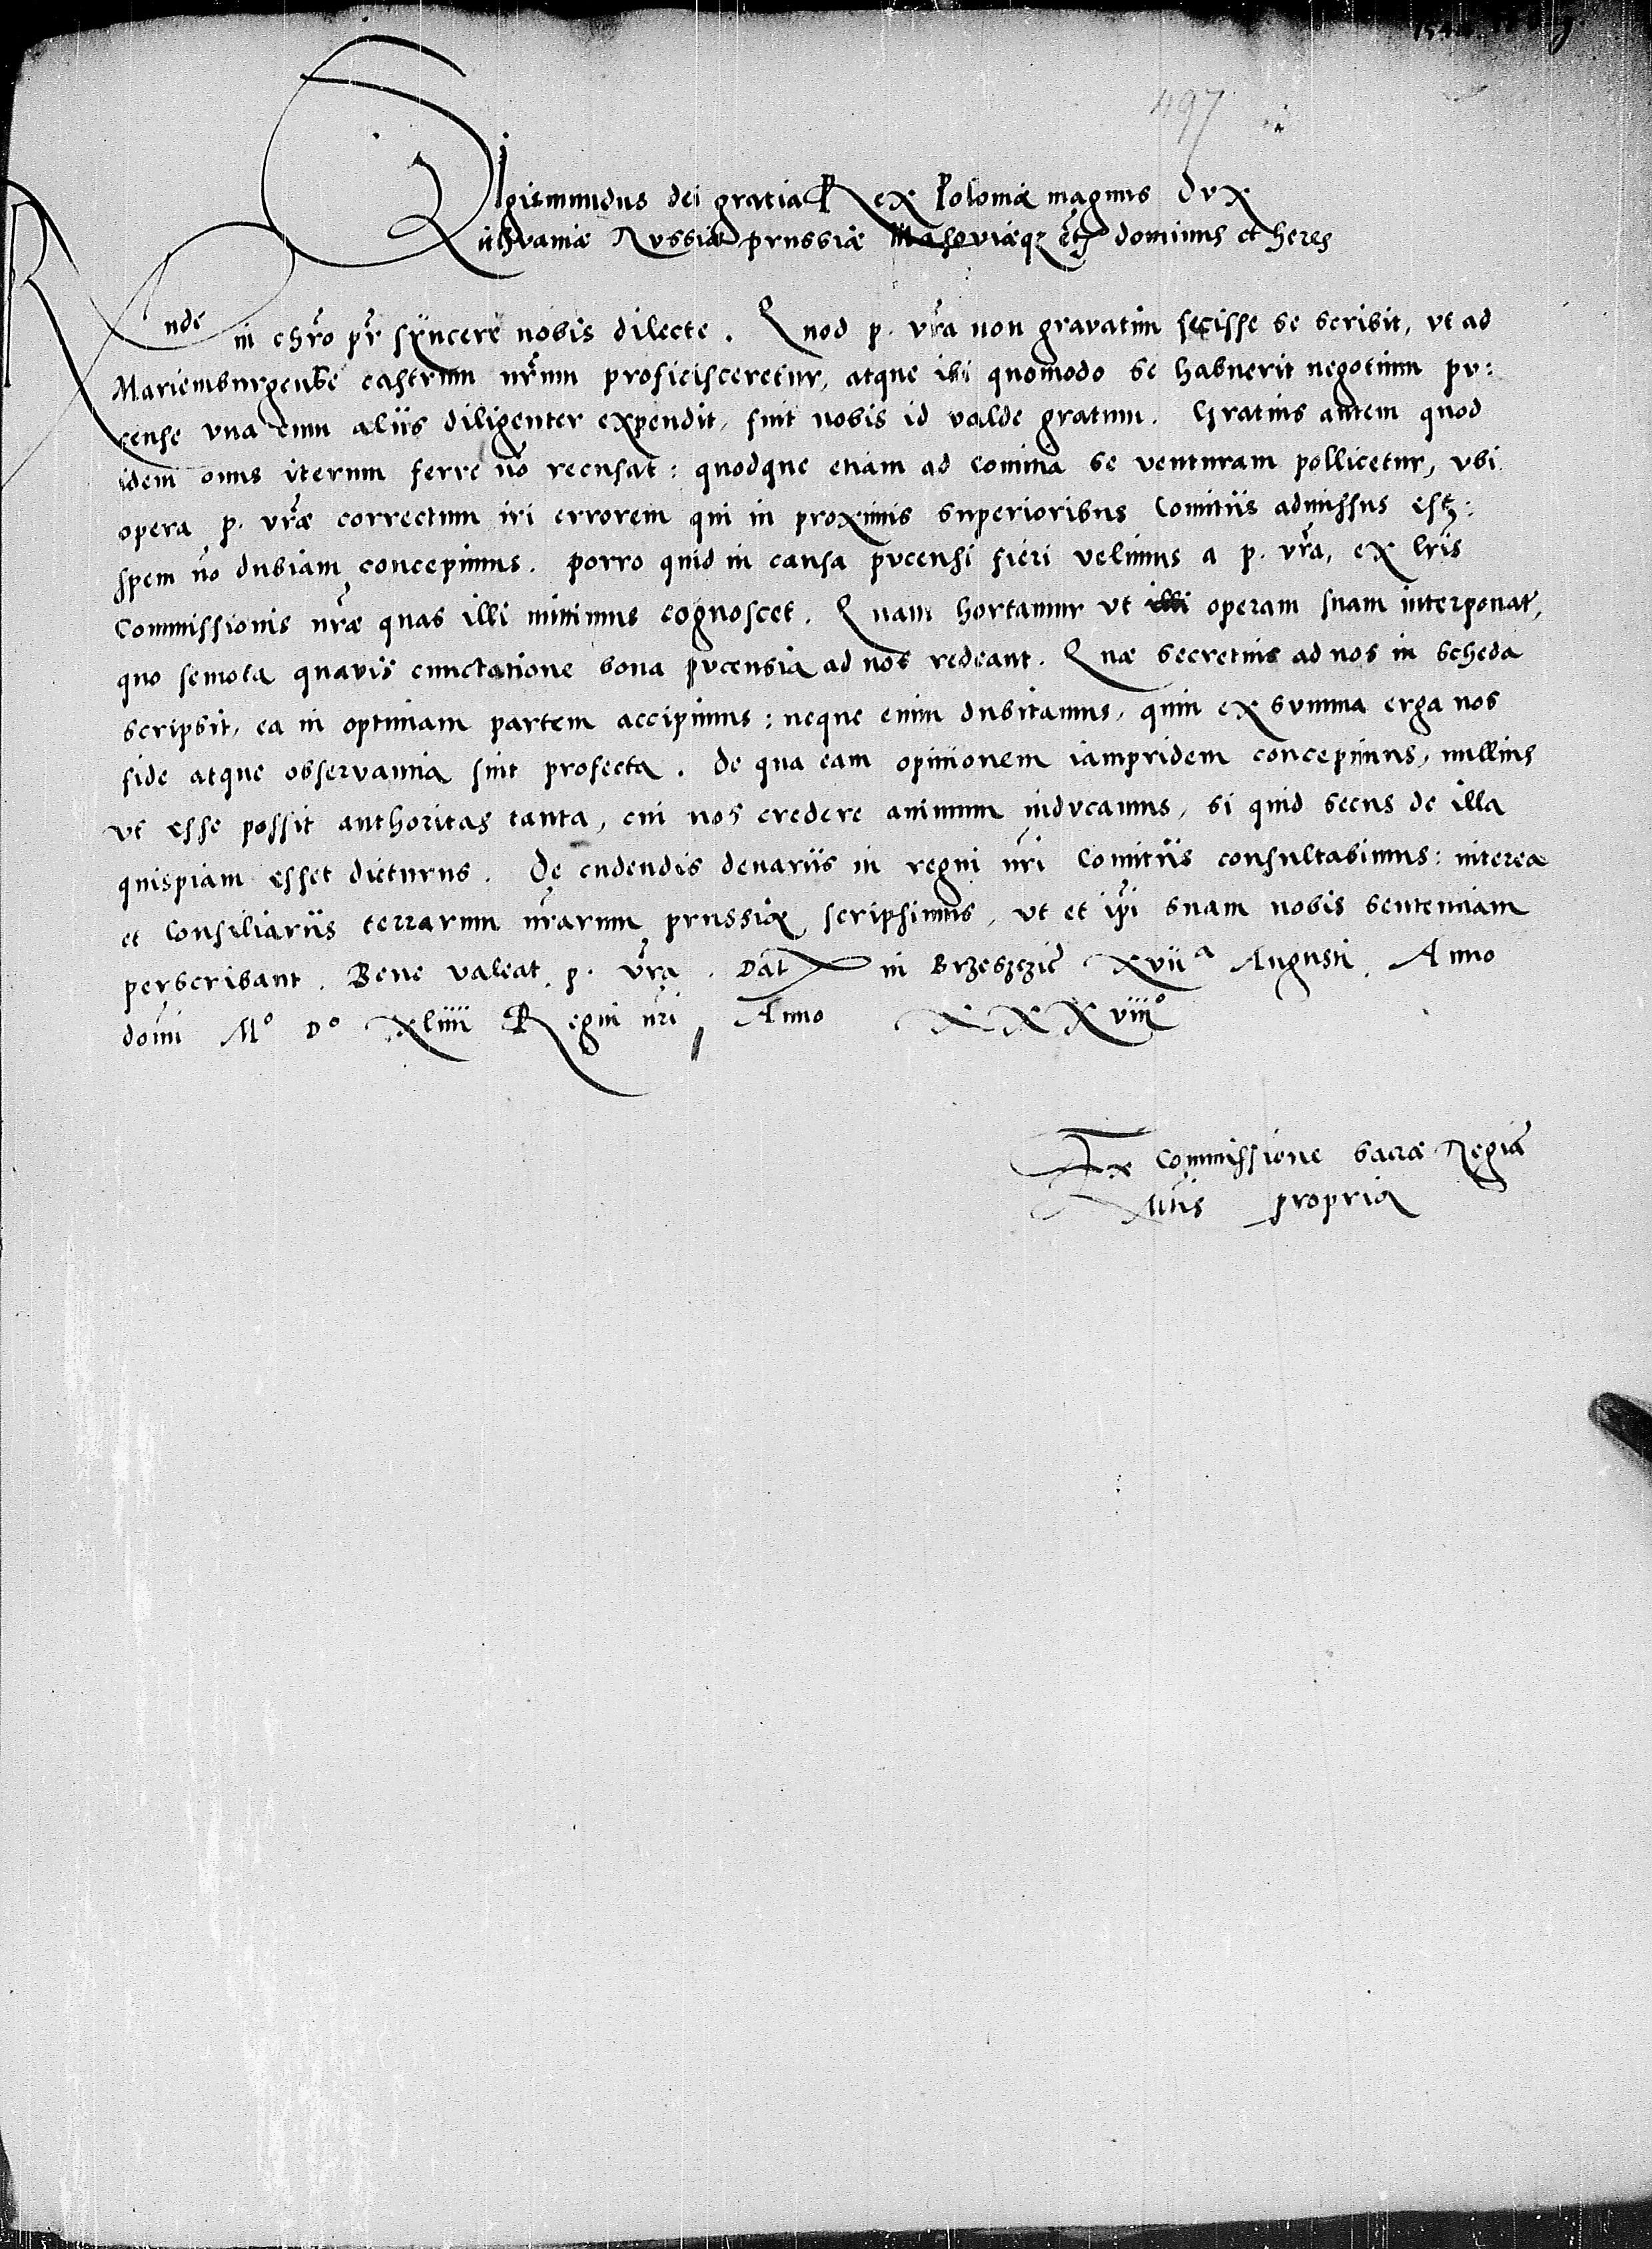 497
Sigismundus dei gratia Rex Poloniæ magnus Dux
Lithvaniæ Rvssiæ prussiæ Masoviæq3 etc dominus et heres
Rnde in chro pr syncere nobis dilecte. Quod p. vra non gravatim fecisse se scribit, vt ad
Mariemburgense castrum nrum proficisceretur, atque ibi quomodo se habuerit negotium pv:
cense vna cum aliis diligenter expendit, fuit nobis id valde gratum. Gratius autem quod
idem onus iterum ferre no recusat: quodque etiam ad comitia se venturam pollicetur, vbi
opera p. vræ correctum iri errorem qui in proximis superioribus Comitiis admissus est:
spem no dubiam concepimus. Porro quid in causa pvcensi fieri velimus a p. vra, ex lris
Commissionis nræ quas illi mittimus cognoscet. Quam hortamur vt illi operam suam interponat,
quo semota quavis cunctatione bona pvcensia ad nos redeant. Quæ secretius ad nos in scheda
scripsit, ea in optimam partem accipimus: neque enim dubitamus, quin ex summa erga nos
fide atque observantia sint profecta. De qua eam opinionem iampridem concepimus, nullius
vt esse possit authoritas tanta, cui nos credere animum indvcamus, si quid secus de illa
quispiam esset dicturus. De cudendis denariis in regni nri Comitiis consultabimus: interea
et Consiliariis terrarum nrarum prussiæ scripsimus, vt et ipi suam nobis sententiam
perscribant. Bene valeat p. vra. Dat in Brzesczie xvii a Augusti. Anno
domi Mo Do xliiii Regni nri Anno xxxviiio
Ex Commissione sacræ Regiæ
Mtis propria